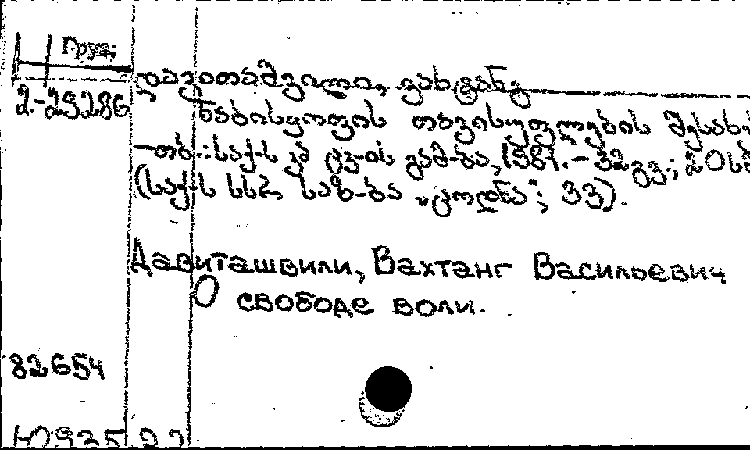 Груз;
2-29286
დავითაშვილი, ვახტანგ
ნების­ყოფის თავისუფლების შესახებ
-თბ.: საქ-ს კპ ცკ-ის გამ-ბა, 1981.- 32 გვ.; 20სმ
(საქ-ს სსრ საზ-ბა „ცოდნა"; 33).
Давиташвили, Вахтанг Васильевич
О свободе воли.
82654